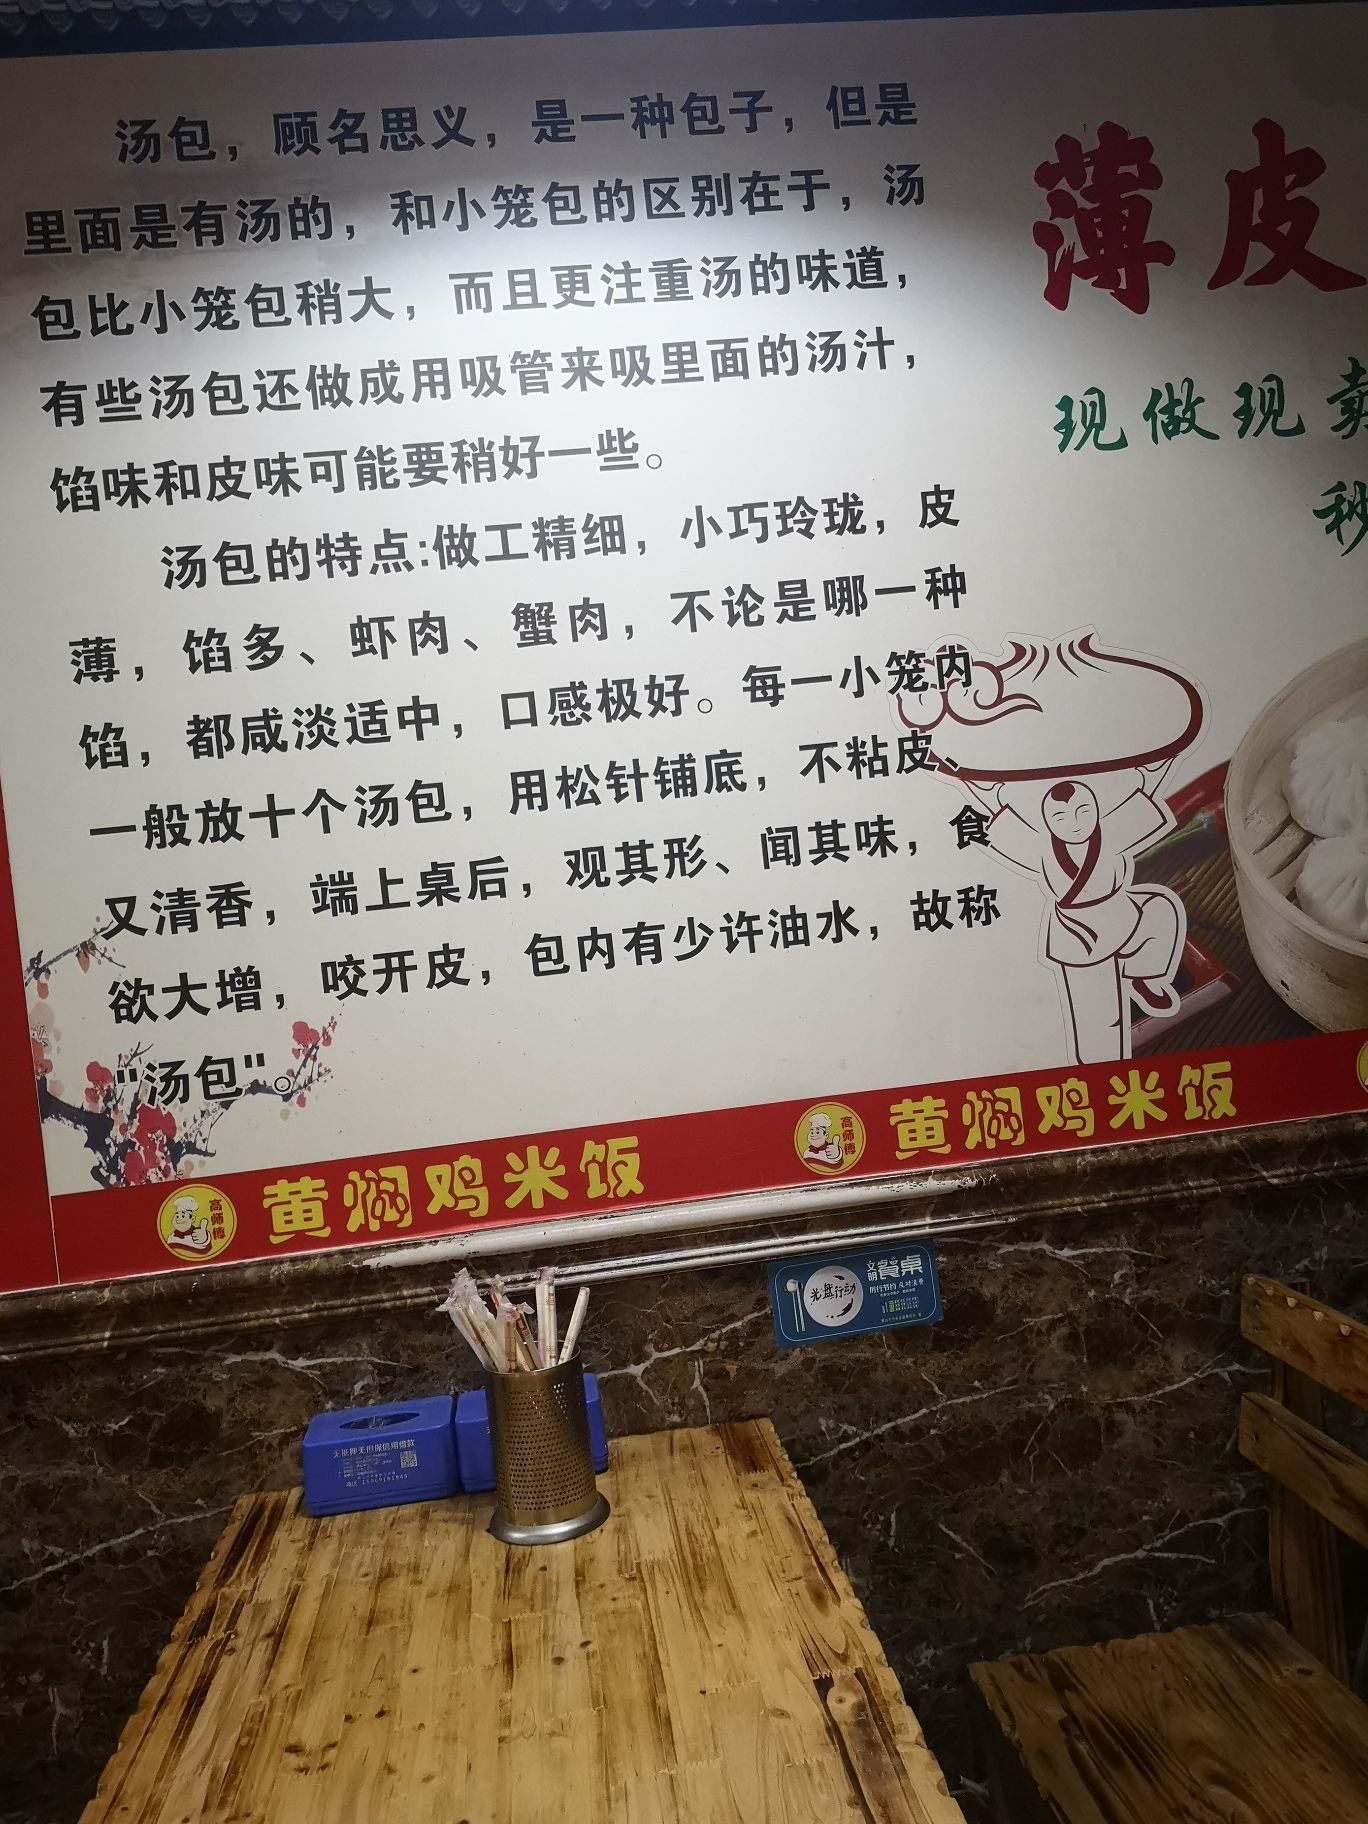 汤包，顾名思义，是一种包子，但是
里面是有汤的，和小笼包的区别在于，汤
包比小笼包稍大，而且更注重汤的味道，
有些汤包还做成用吸管来吸里面的汤汁，
馅味和皮味可能要稍好一些。
汤包的特点:做工精细，小巧玲珑，皮
薄，馅多、虾肉、蟹肉，不论是哪一种
馅，都咸淡适中，口感极好。每一小笼内
一般放十个汤包，用松针铺底，不粘皮、
又清香，端上桌后，观其形、闻其味，食
欲大增，咬开皮，包内有少许油水，故称
"汤包"。
薄皮
现做现卖
秒
高师傅
黄焖鸡米饭
高师傅
黄焖鸡米饭
光盘行动
文明餐桌
厉行节约 反对浪费
无抵押无担保信用借款